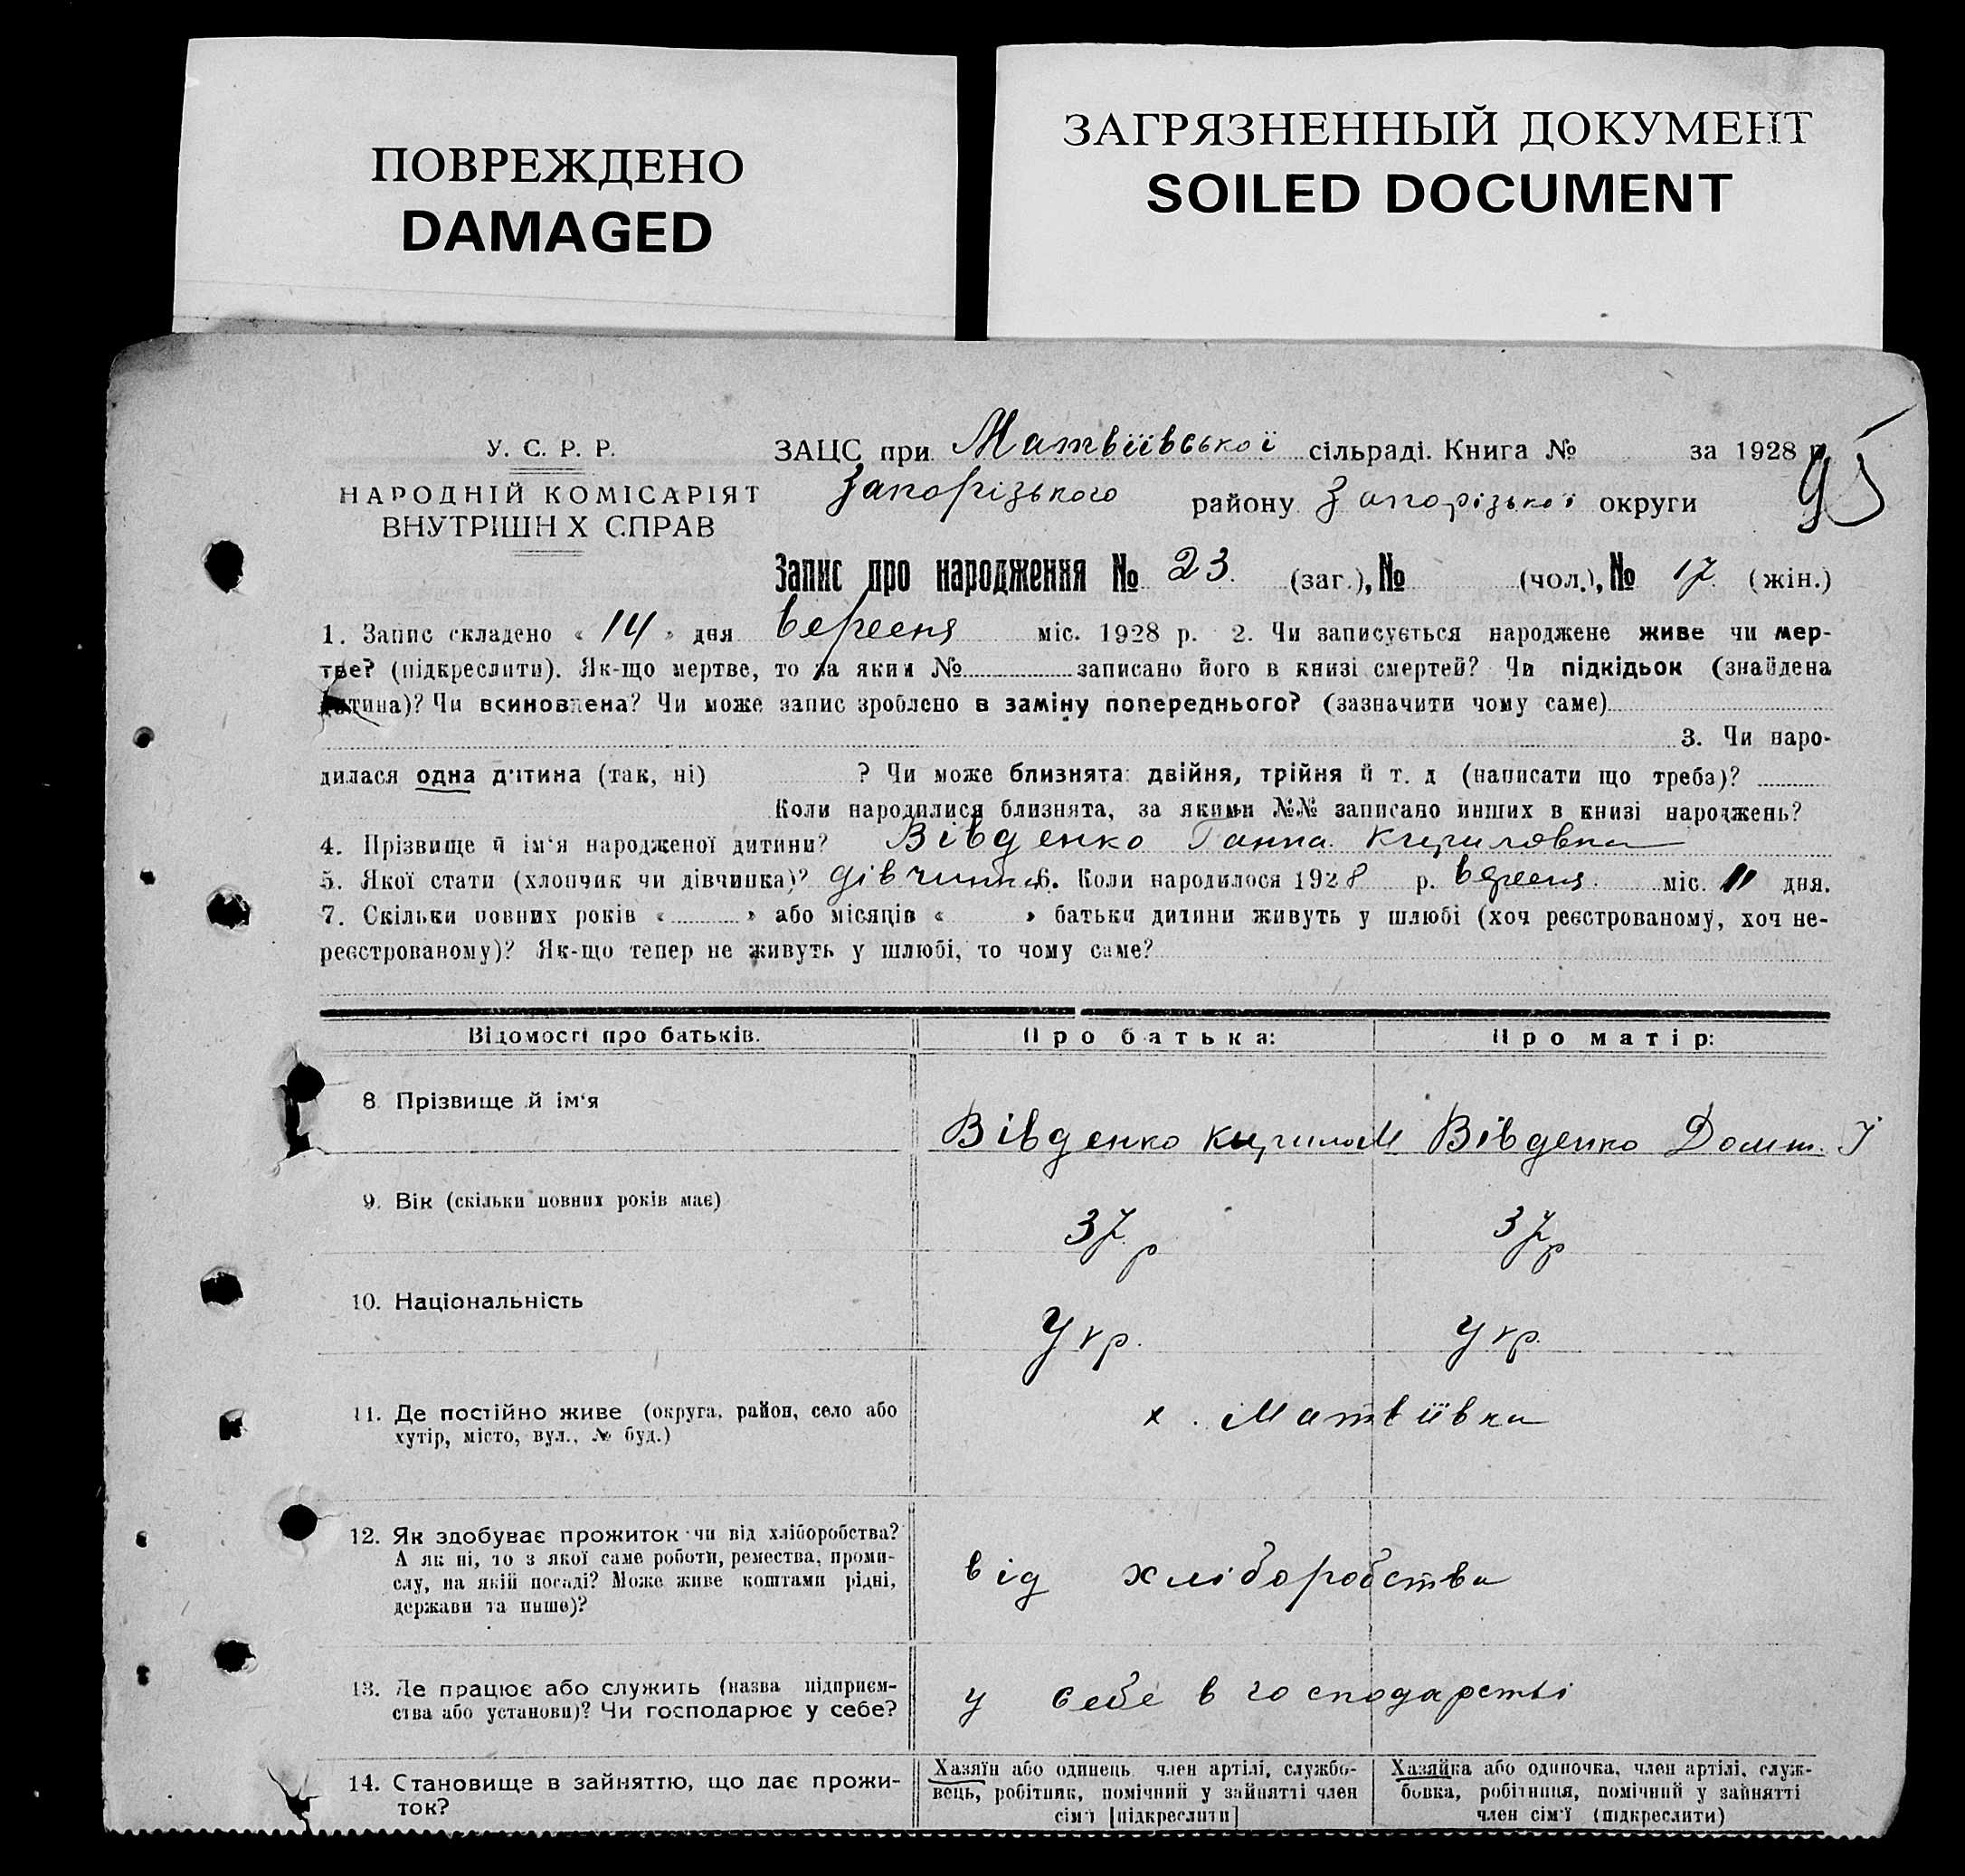 ПОВРЕЖДЕНО
DAMAGED
ЗАГРЯЗНЕННЫЙ ДОКУМЕНТ
SOILED DOCUMENT
У. С. Р. Р.
НАРОДНІЙ КОМІСАРІЯТ
ВНУТРІШН Х СПРАВ
ЗАЦС при Матвіївської сільраді. Книга № за 1928 р.
95
Запорізького району Запорізької округи
Запис про народження № 23 (заг.), № (чол.), № 17 (жін.)
1. Запис складено « 14 » дня вересня міс. 1928 р. 2. Чи записується народжене живе чи мер-
тве? (підкреслити). Як-що мертве, то за яким № записано його в книзі смертей? Чи підкідьок (знайдена
дитина)? Чи всиновлена? Чи може запис зроблено в заміну попереднього? (зазначити чому саме)
3. Чи наро-
дилася одна дитина (так, ні) ? Чи може близнята: двійня, трійня й т. д (написати що треба)?
Коли народилися близнята, за якими №№ записано инших в книзі народжень?
4. Прізвище й ім'я народженої дитини? Вівденко Ганна Кириловна
5. Якої стати (хлопчик чи дівчинка)? дівчинка 6. Коли народилося 1928 р. вересня міс. 11 дня.
7. Скільки повних років « » або місяців « » батьки дитини живуть у шлюбі (хоч реєстрованому, хоч не-
реєстрованому)? Як-що тепер не живуть у шлюбі, то чому саме?
Відомості про батьків. Про батька: Про матір:
8 Прізвище й ім'я
Вівденко Кирило М Вівденко Домн. І
9. Вік (скільки повних років має)
37 р 37 р
10. Національність
Укр. Укр.
11. Де постійно живе (округа, район, село або
хутір, місто, вул., № буд.)
х. Матвіївка
12. Як здобуває прожиток чи від хліборобства?
А як ні, то з якої саме роботи, ремества, проми-
слу, на якій посаді? Може живе коштами рідні,
держави та инше)?
від хліборобства
13. Де працює або служить (назва підприєм-
ства або установи)? Чи господарює у себе?
у себе в господарстві
14. Становище в зайняттю, що дає прожи-
ток?
Хазяїн або одинець член артілі, службо-
вець, робітник, помічний у зайнятті член
сім'ї [підкреслити]
Хазяйка або одиночка, член артілі, служ-
бовка, робітниця, помічний у зайнятті
член сім'ї (підкреслити)